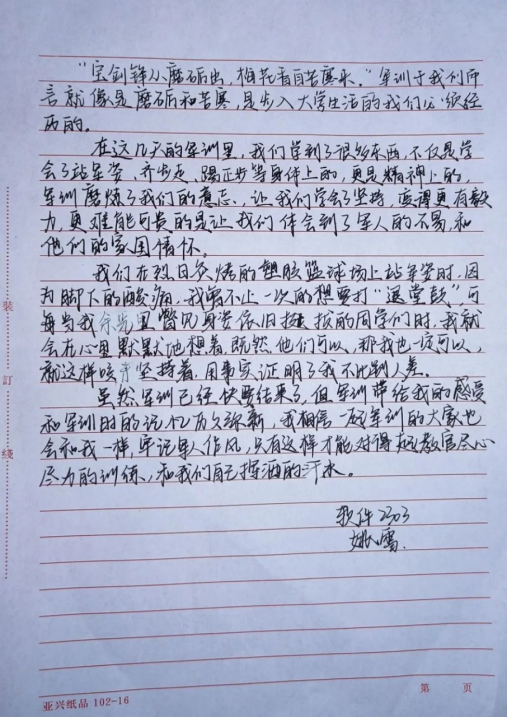 “宝剑锋从磨砺出，梅花香自苦寒来。”军训于我们而
言就像是磨砺和苦寒，是步入大学生活的我们必须经
历的。
在这几天的军训里，我们学到了很多东西，不仅是学
会了站军姿、齐步走、踢正步等身体上的，更是精神上的，
军训磨炼了我们的意志，让我们学会了坚持，变得更有毅
力，更难能可贵的是让我们体会到了军人的不易，和
他们的家国情怀。
我们在烈日炙烤的塑胶篮球场上站军姿时，因
为脚下的酸痛，我需不止一次的想要打“退堂鼓”可
每当我余光里瞥见身姿依旧挺拔的同学们时，我就
会在心里默默地想着，既然他们可以，那我也一定可以，
就这样咬牙坚持着，用事实证明了我不比别人差。
虽然军训已经快要结束了，但军训带给我的感受
和军训时的记忆历久弥新，我相信一起军训的大家也
会和我一样，牢记军人作风，只有这样才能对得起教官尽心
尽力的训练，和我们自己挥洒的汗水。
软件2303
姚雪.
装
订
线
亚兴纸品 102-16
第 页